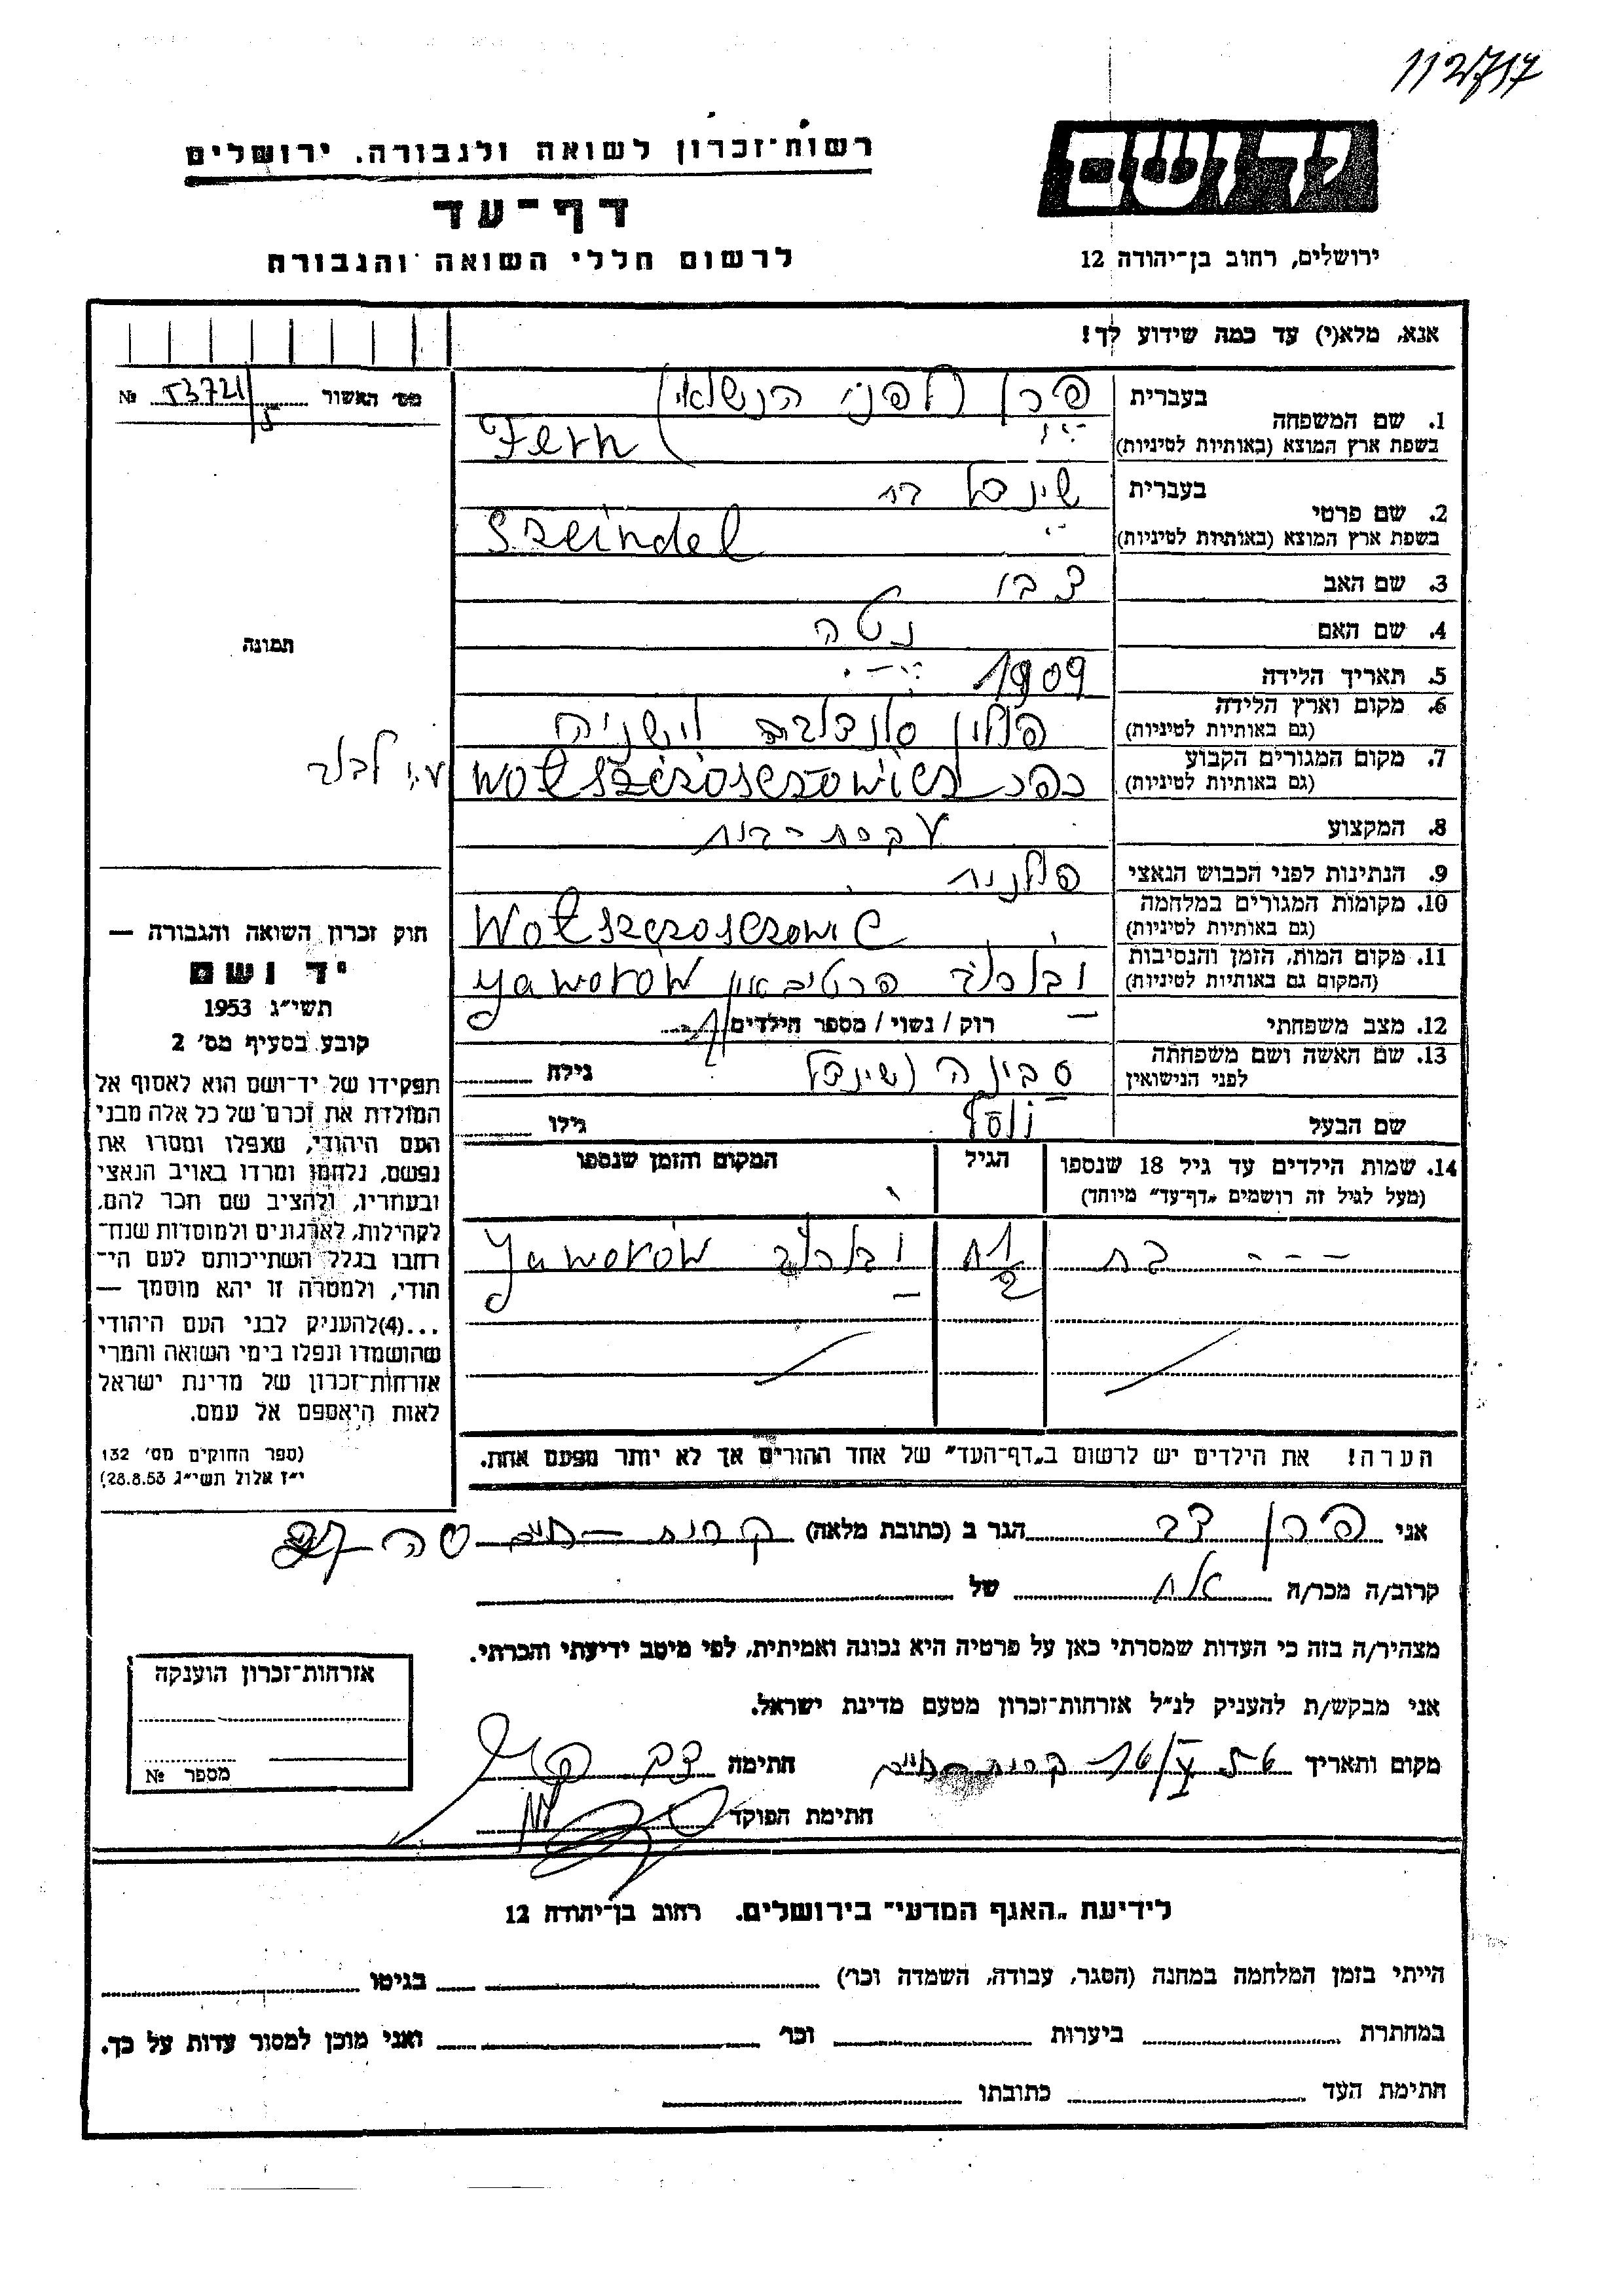 112717
רשות־זכרון לשואה ולגבורה, ירושלים
דף־עד
לרשום חללי השואה והגבורה
יד ושם
ירושלים, רחוב בן־יהודה 12
אנא, מלא(י) עד כמה שידוע לך!
מס׳ האשור № 53721
1. שם המשפחה
בעברית פרן (לפני הנשואי
בשפת ארץ המוצא (באותיות לטיניות) Fern
2. שם פרטי
בעברית שינדל
בשפת ארץ המוצא (באותיות לטיניות) Szeindel
3. שם האב
4. שם האם נטה
תמונה
5. תאריך הלידה 1909
6. מקום וארץ הלידה (גם באותיות לטיניות) פולין
7. מקום המגורים הקבוע (גם באותיות לטיניות) כפר
ע״י
8. המקצוע עקרת-בית
9. הנתינות לפני הכבוש הנאצי פולנית
10. מקומות המגורים במלחמה (גם באותיות לטיניות)
11. מקום המות, הזמן והנסיבות (המקום גם באותיות לטיניות) Yaworów
12. מצב משפחתי רוק / נשוי / מספר הילדים 1
13. שם האשה ושם משפחתה לפני הנישואין סבינה (שינדל גילה
שם הבעל יוסף גילו
14. שמות הילדים עד גיל 18 שנספו (מעל לגיל זה רושמים „דף־עד״ מיוחד)
הגיל
המקום והזמן שנספו
- - - בת
Yaworów
הערה! את הילדים יש לרשום ב„דף־העד״ של אחד ההורים אך לא יותר מפעם אחת.
חוק זכרון השואה והגבורה —
יד ושם
תשי״ג 1953
קובע בסעיף מס׳ 2
תפקידו של יד־ושם הוא לאסוף אל
המולדת את זכרם של כל אלה מבני
העם היהודי, שנפלו ומסרו את
נפשם, נלחמו ומרדו באויב הנאצי
ובעוזריו, ולהציב שם וזכר להם,
לקהילות, לארגונים ולמוסדות שנח־
רחבו בגלל השתייכותם לעם הי־
הודי, ולמטרה זו יהא מוסמך —
...(4)להעניק לבני העם היהודי
שהושמדו ונפלו בימי השואה והמרי
אזרחות־זכרון של מדינת ישראל
לאות היאספם אל עמם.
(ספר החוקים מס׳ 132
י״ז אלול תשי״ג 28.8.53)
אני פרן צבי הגר ב (כתובת מלאה) קרית-חיים
קרוב/ה מכר/ה אח של
מצהיר/ה בזה כי העדות שמסרתי כאן על פרטיה היא נכונה ואמיתית, לפי מיטב ידיעתי והכרתי.
אני מבקש/ת להעניק לנ״ל אזרחות־זכרון מטעם מדינת ישראל.
מקום ותאריך קרית-חיים חתימה
חתימת הפוקד
אזרחות־זכרון הוענקה
מספר №
לידיעת „האגף המדעי״ בירושלים. רחוב בן־יהודה 12
הייתי בזמן המלחמה במחנה (הסגר, עבודה, השמדה וכו׳) בגיטו
במחתרת ביערות וכו׳ ואני מוכן למסור עדות על כך.
חתימת העד כתובתו